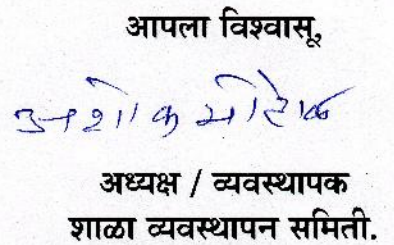 आपला विश्वासू,
अशोक
अध्यक्ष / व्यवस्थापक
शाळा व्यवस्थापन समिती.